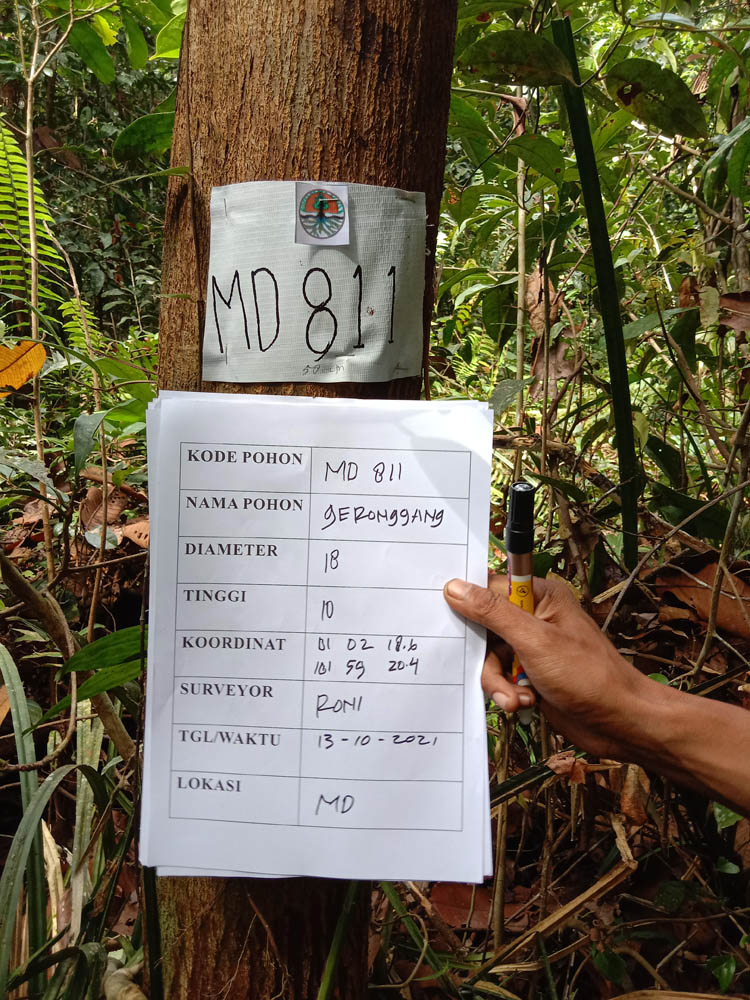 MD 811
KODE POHON MD 811
NAMA POHON gERONggANg
DIAMETER 18
TINGGI 10
KOORDINAT 01 02 18.6
101 59 20.4
SURVEYOR RONI
TGL/WAKTU 13-10-2021
LOKASI MD